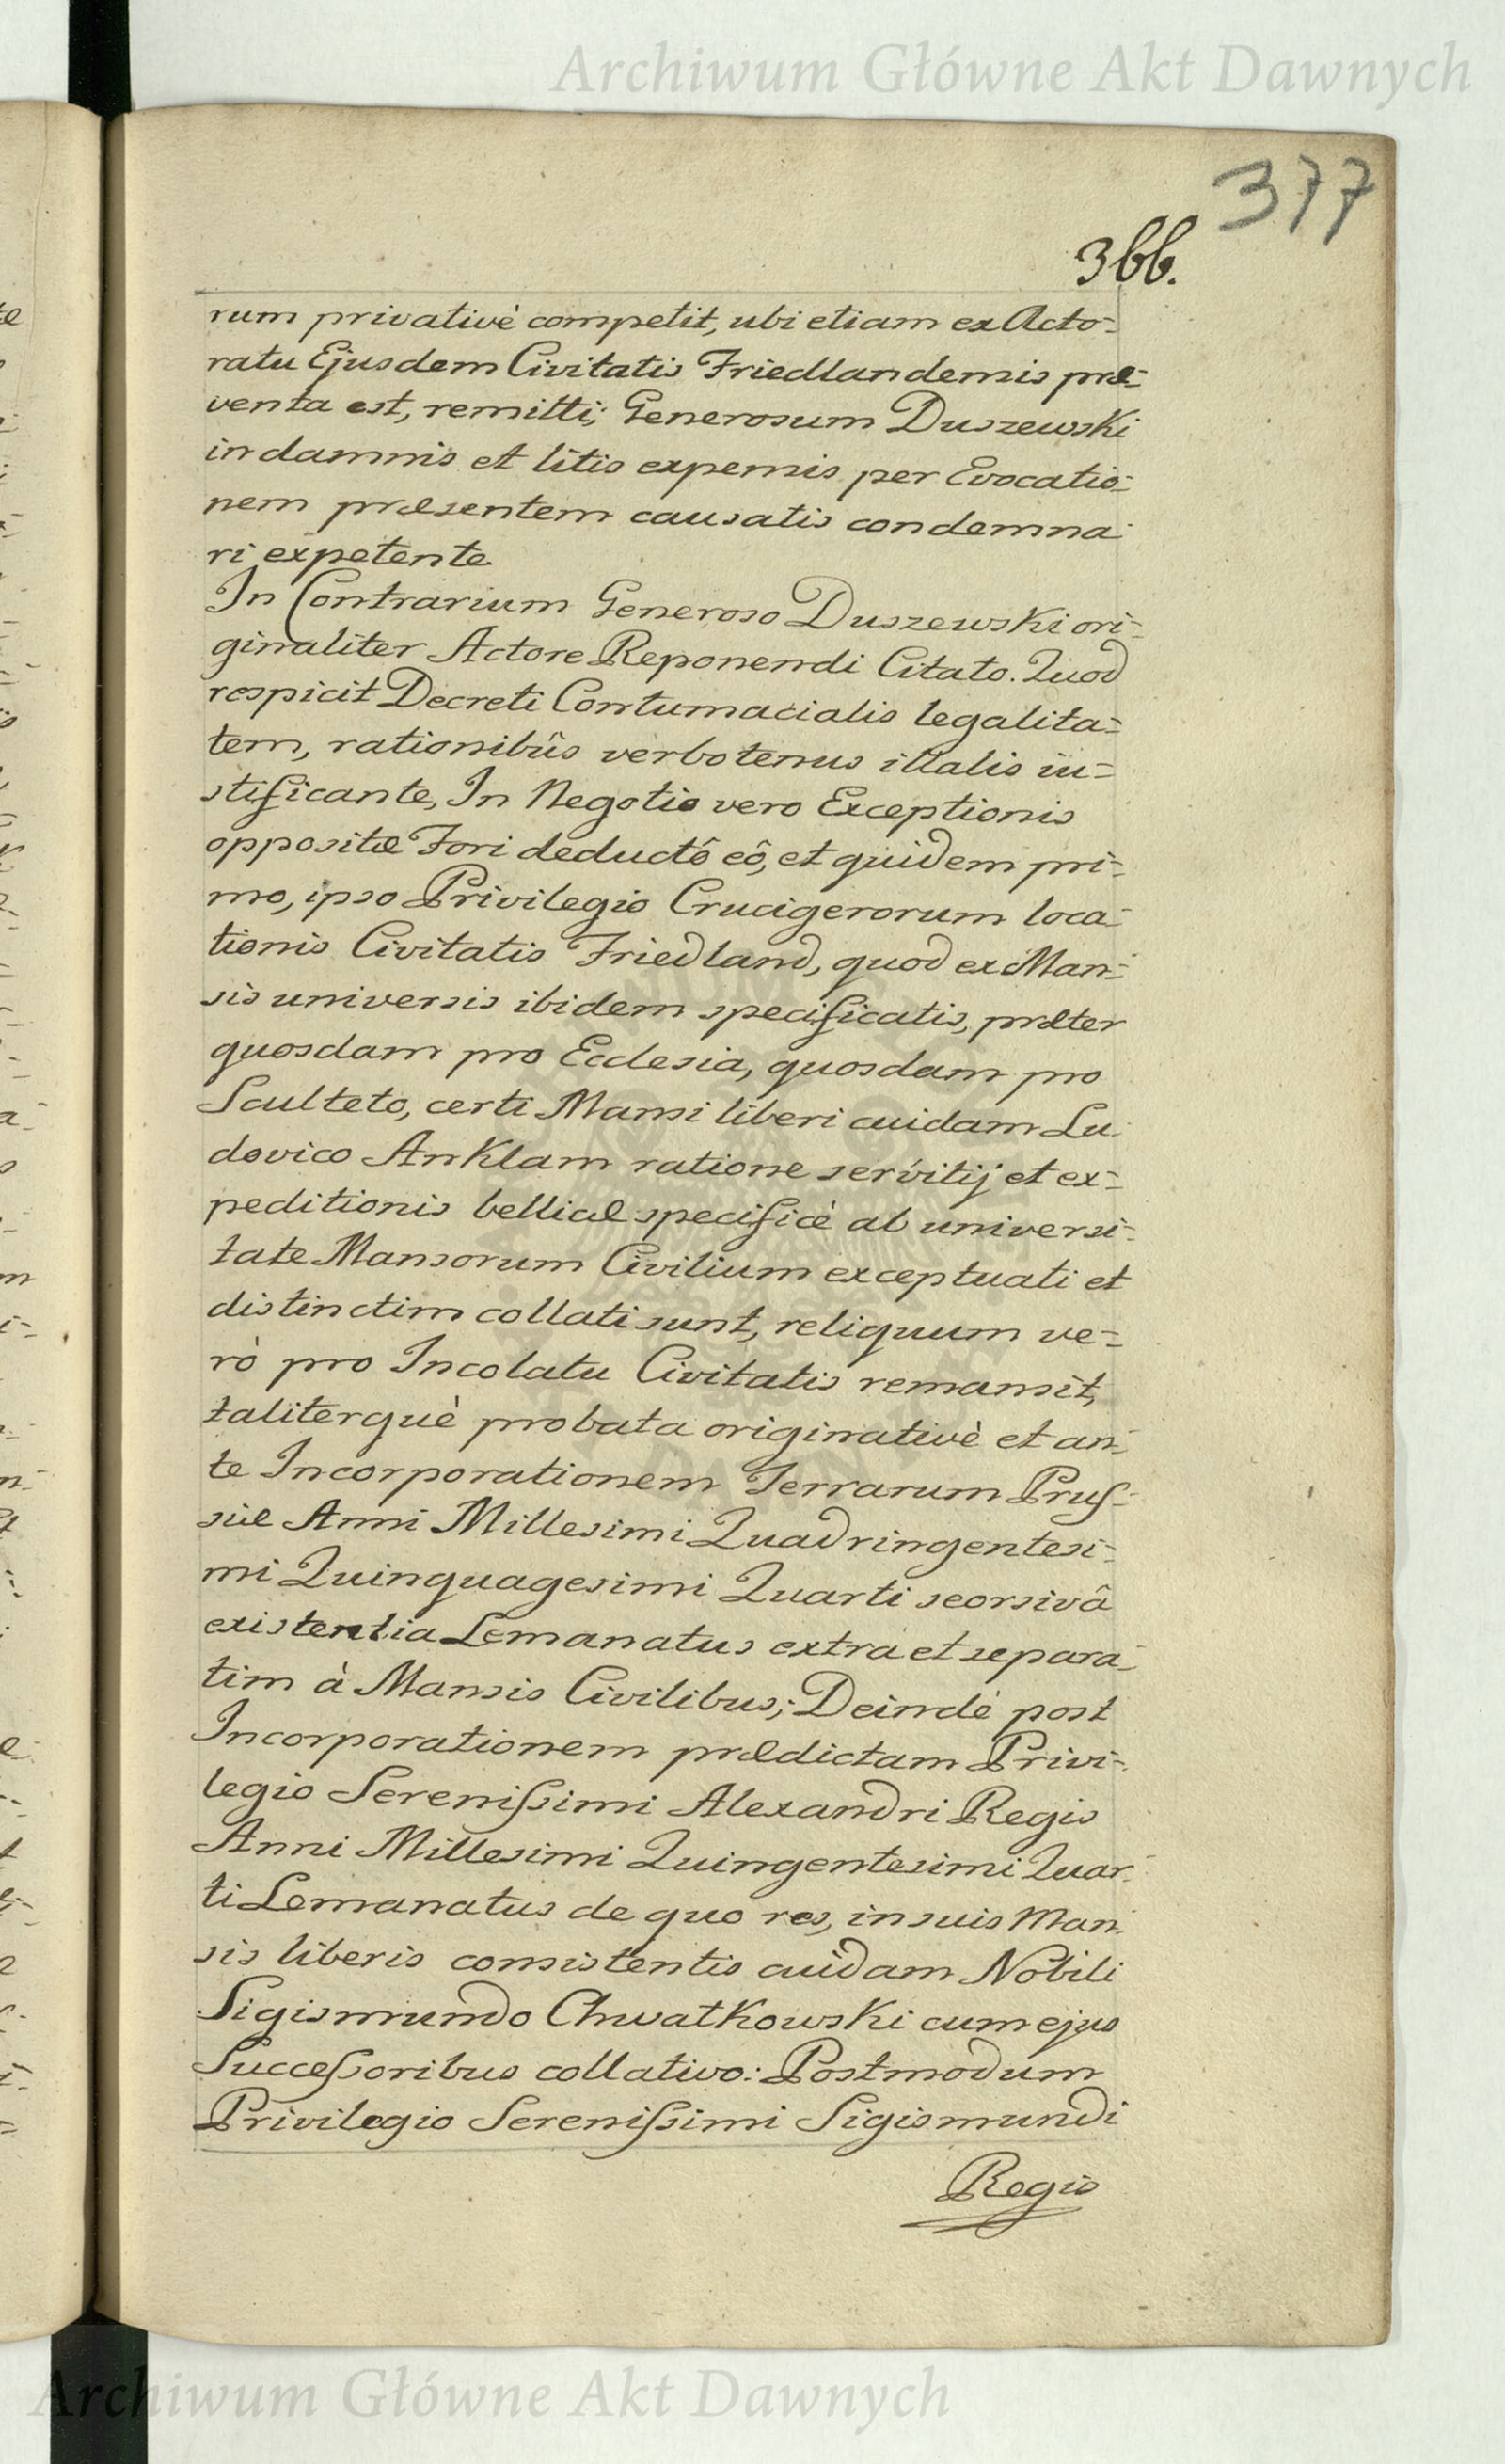 Archiwum Główne Akt Dawnych
377
366.
rum privativè competit, ubi etiam ex Acto-
ratu Ejusdem Civitatis Friedlandensis præ-
venta est, remitti; Generosum Duszewski
in damnis et litis expensis per Evocatio-
nem præsentem causatis condemna-
ri expetente.
In Contrarium Generoso Duszewski ori-
ginaliter Actore Reponendi Citato. Quod
respicit Decreti Contumacialis legalita-
tem, rationibûs verbotenus illatis iu-
stificante, In Negotio vero Exceptionis
oppositæ Fori deductô eô, et quidem pri-
mo, ipso Privilegio Crucigerorum loca-
tionis Civitatis Friedland, quod ex Man-
sis universis ibidem specificatis, præter
quosdam pro Ecclesia, quosdam pro
Sculteto, certi Mansi liberi cuidam Lu-
dovico Anklam ratione servitij et ex-
peditionis bellicæ specificè ab universi-
tate Mansorum Civilium exceptuati et
distinctim collati sunt, reliquum ve-
rò pro Incolatu Civitatis remansit,
taliterquè probata originativè et an-
te Incorporationem Terrarum Prus-
siæ Anni Millesimi Quadringentesi-
mi Quinquagesimi Quarti seorsivâ
existentia Lemanatus extra et separa-
tim à Mansis Civilibus; Deindè post
Incorporationem prædictam Privi-
legio Serenissimi Alexandri Regis
Anni Millesimi Quingentesimi Quar-
ti Lemanatus de quo res, in suis Man-
sis liberis consistentis cuidam Nobili
Sigismundo Chwatkowski cum ejus
Successoribus collativo: Postmodum
Privilegio Serenissimi Sigismundi
Regis
Archiwum Główne Akt Dawnych